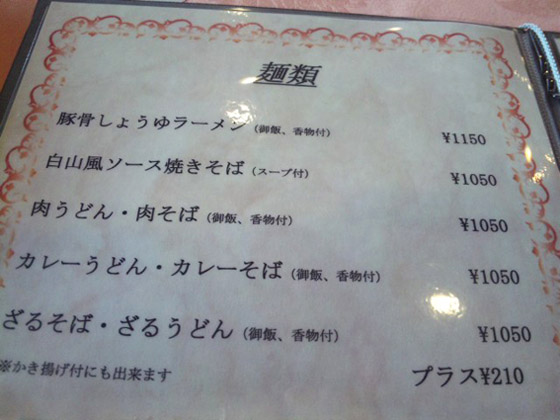 麺類
豚骨しょうゆラーメン（御飯、香物付） ¥1150
白山風ソース焼きそば（スープ付） ¥1050
肉うどん・肉そば（御飯、香物付） ¥1050
カレーうどん・カレーそば（御飯、香物付） ¥1050
ざるそば・ざるうどん（御飯、香物付） ¥1050
※かき揚げ付にも出来ます プラス¥210